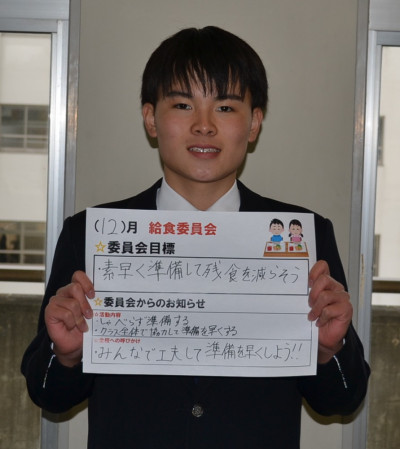 (12)月 給食委員会
☆委員会目標
・素早く準備して残食を減らそう
☆委員会からのお知らせ
☆活動内容
・しゃべらず準備する
・クラス全体で協力して準備を早くする
☆全校への呼びかけ
・みんなで工夫して準備を早くしよう!!